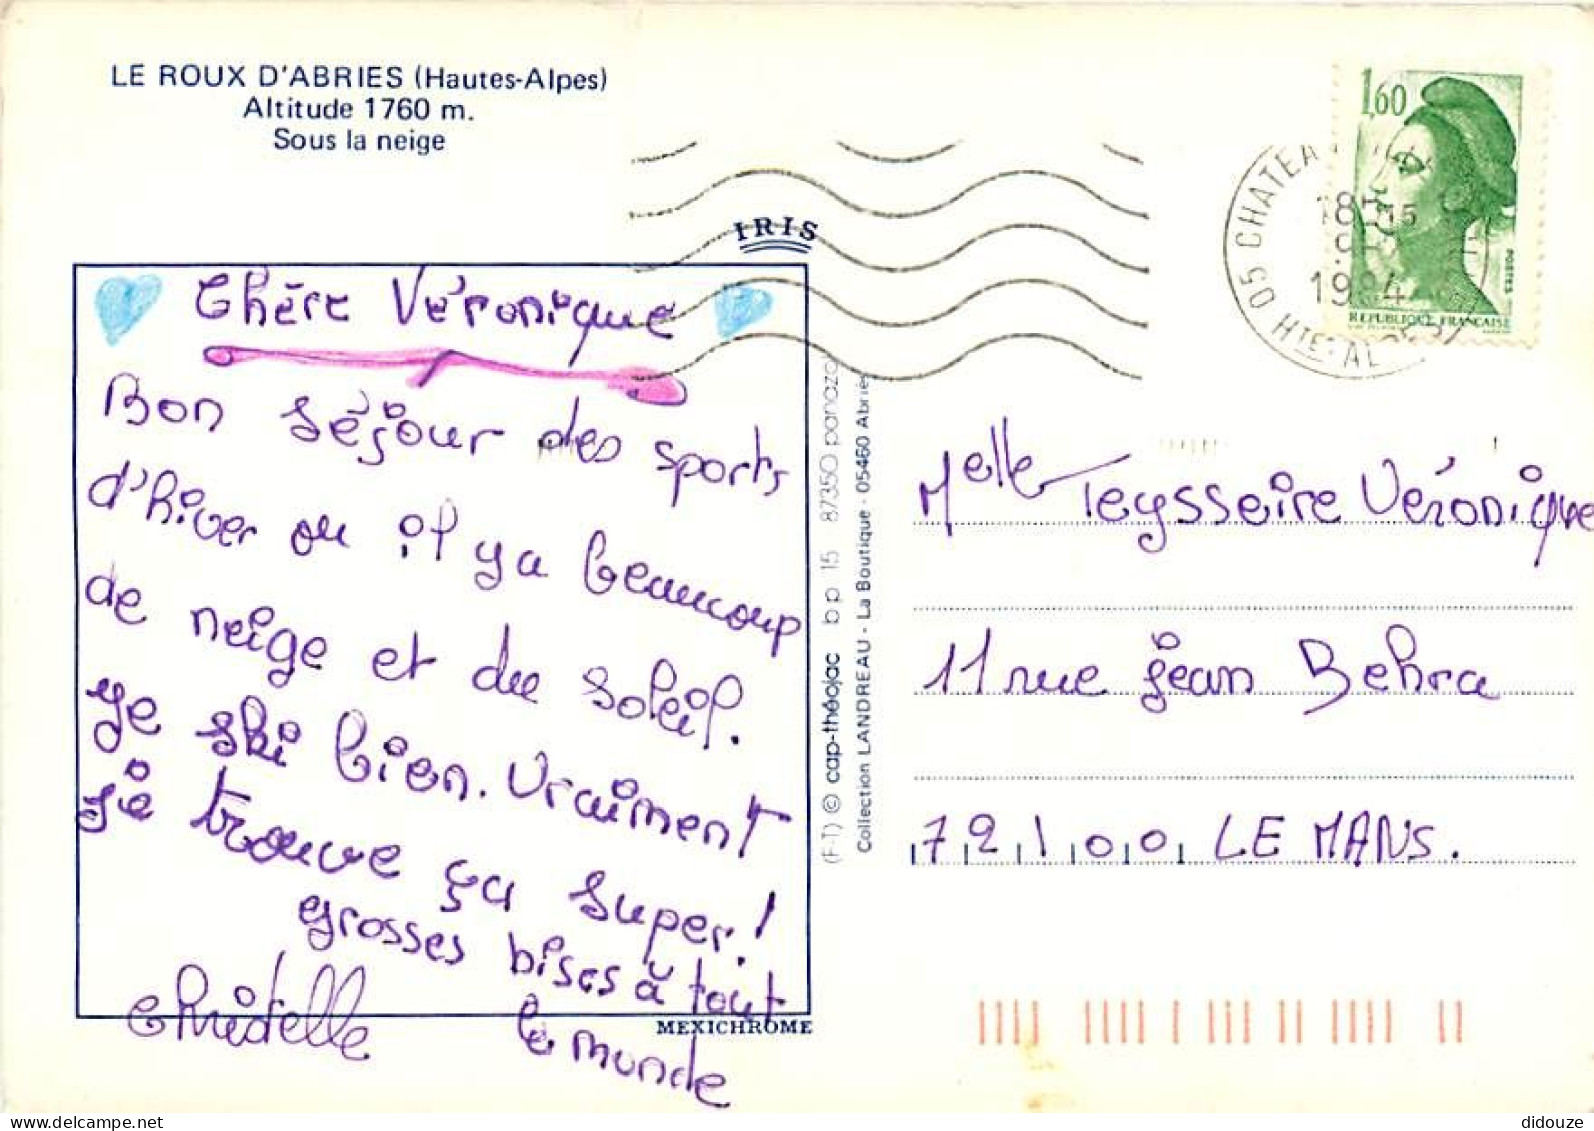 LE ROUX D'ABRIES (Hautes-Alpes)
Altitude 1760 m.
Sous la neige
IRIS
Chère Véronique
Bon séjour des sports
d'hiver ou il y a beaucoup
de neige et du soleil.
je ski bien. Vraiment
je trouve ça super!
grosses bises à tout
le monde
Christelle
MEXICHROME
(F-T) © cap-théojac bp 15 87350 panazol
Collection LANDREAU - La Boutique - 05460 Abriès
1,60
POSTES
REPUBLIQUE FRANÇAISE
05 CHATEA
18H15
1984
HTES AL
Melle Teysseire Véronique
11 rue Jean Behra
72100 LE MANS.
delcampe.net
didouze